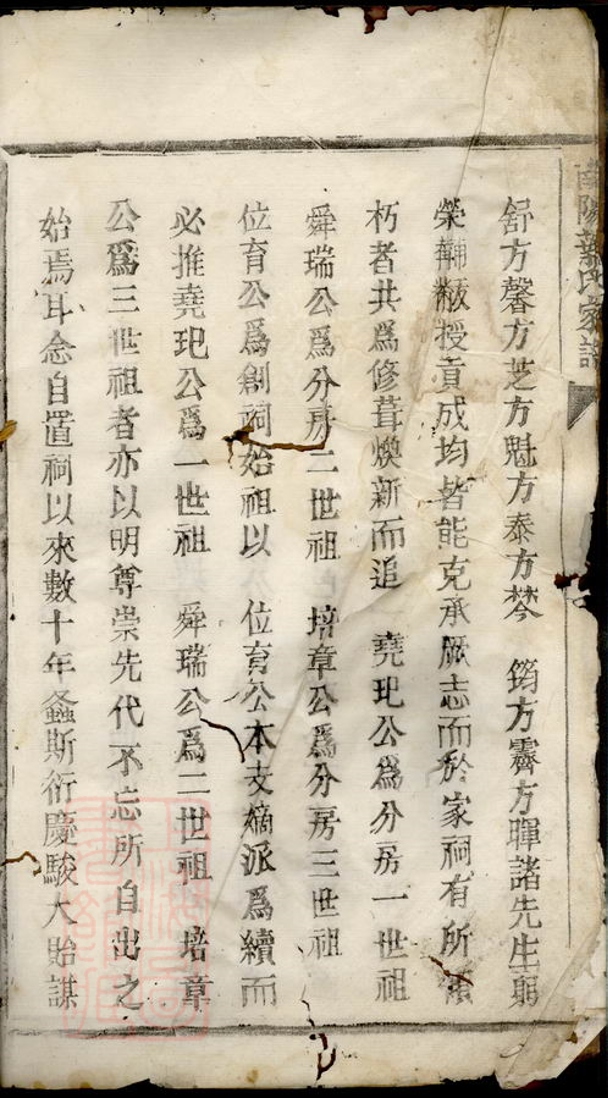 南陽葉氏家譜
舒方馨方芝方魁方泰方棽　筠方霽方暉諸先生躬
榮黼黻授貢成均皆能克承厥志而於家祠有所傾
朽者共爲修葺煥新而追　堯玘公爲分房一世祖
舜瑞公爲分房二世祖　培章公爲分房三世祖
位育公爲創祠始祖以　位育公本支嫡派爲續而
必推堯玘公爲一世祖　舜瑞公爲二世祖　培章
公爲三世祖者亦以明尊崇先代不忘所自出之
始焉耳念自置祠以來數十年螽斯衍慶駿大貽謀